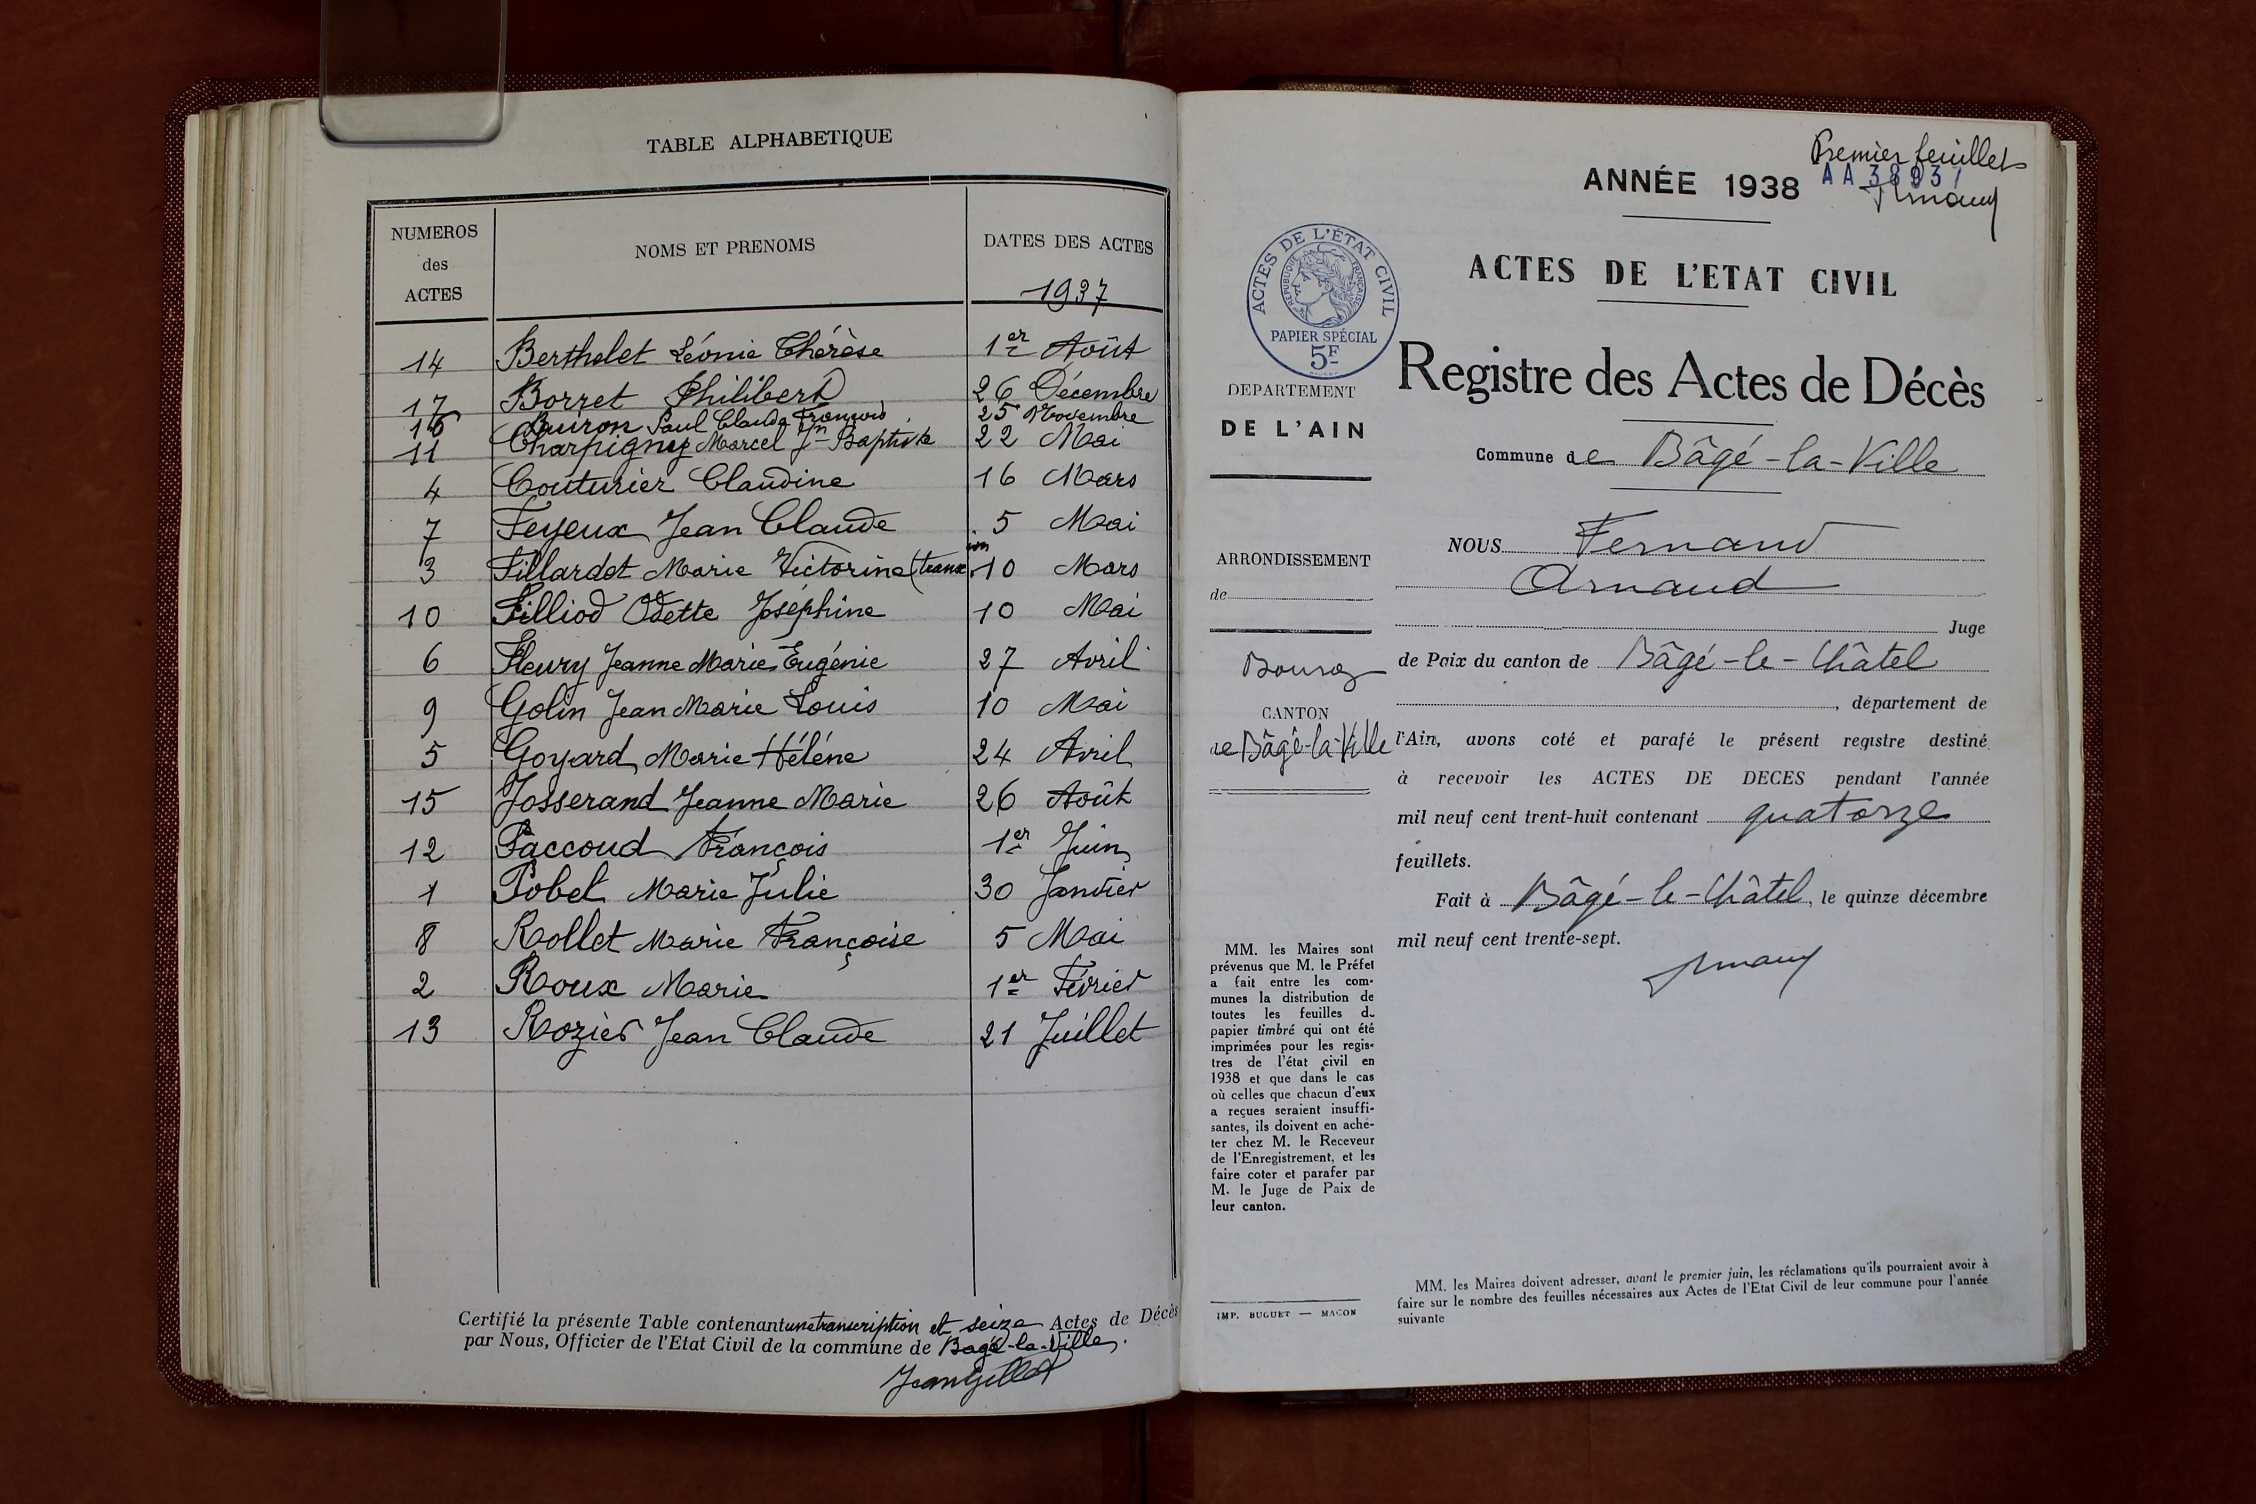 TABLE ALPHABETIQUE
NUMEROS des ACTES
NOMS ET PRENOMS
DATES DES ACTES
1937
14 Berthelet Léonie Thérèse 1er Août
17 Borret Philibert 26 Décembre
16 Buiron Paul Claude François 25 Novembre
11 Charpigny Marcel Jn Baptiste 22 Mai
4 Couturier Claudine 16 Mars
7 Feyeux Jean Claude 5 Mai
3 Fillardet Marie Victorine (transion 10 Mars
10 Filliod Odette Joséphine 10 Mai
6 Fleury Jeanne Marie Eugénie 27 Avril
9 Golin Jean Marie Louis 10 Mai
5 Goyard Marie Héléne 24 Avril
15 Josserand Jeanne Marie 26 Août
12 Paccoud François 1er Juin
1 Pobel Marie Julie 30 Janvier
8 Rollet Marie Françoise 5 Mai
2 Roux Marie 1er Février
13 Rozier Jean Claude 21 Juillet
Certifié la présente Table contenant une transcription et seize Actes de Décès
par Nous, Officier de l'Etat Civil de la commune de Bagé-la-Ville.
Jean Gillet
Premier feuillet
AA 38937
Arnaud
ANNÉE 1938
ACTES DE L'ÉTAT CIVIL
RÉPUBLIQUE FRANÇAISE
PAPIER SPÉCIAL
5F
ACTES DE L'ETAT CIVIL
Registre des Actes de Décès
DEPARTEMENT
DE L'AIN
Commune de Bâgé-la-Ville
ARRONDISSEMENT
de
Bourg
CANTON
de Bâgé-la-Ville
NOUS Fernand
Arnaud
Juge
de Paix du canton de Bâgé-le-Châtel
, département de
l'Ain, avons coté et parafé le présent registre destiné
à recevoir les ACTES DE DECES pendant l'année
mil neuf cent trent-huit contenant quatorze
feuillets.
Fait à Bâgé-le-Châtel, le quinze décembre
mil neuf cent trente-sept.
Arnaud
MM. les Maires sont
prévenus que M. le Préfet
a fait entre les com-
munes la distribution de
toutes les feuilles d
papier timbré qui ont été
imprimées pour les regis-
tres de l'état civil en
1938 et que dans le cas
où celles que chacun d'eux
a reçues seraient insuffi-
santes, ils doivent en ache-
ter chez M. le Receveur
de l'Enregistrement, et les
faire coter et parafer par
M. le Juge de Paix de
leur canton.
IMP. BUGUET — MACON
MM. les Maires doivent adresser, avant le premier juin, les réclamations qu'ils pourraient avoir à
faire sur le nombre des feuilles nécessaires aux Actes de l'Etat Civil de leur commune pour l'année
suivante